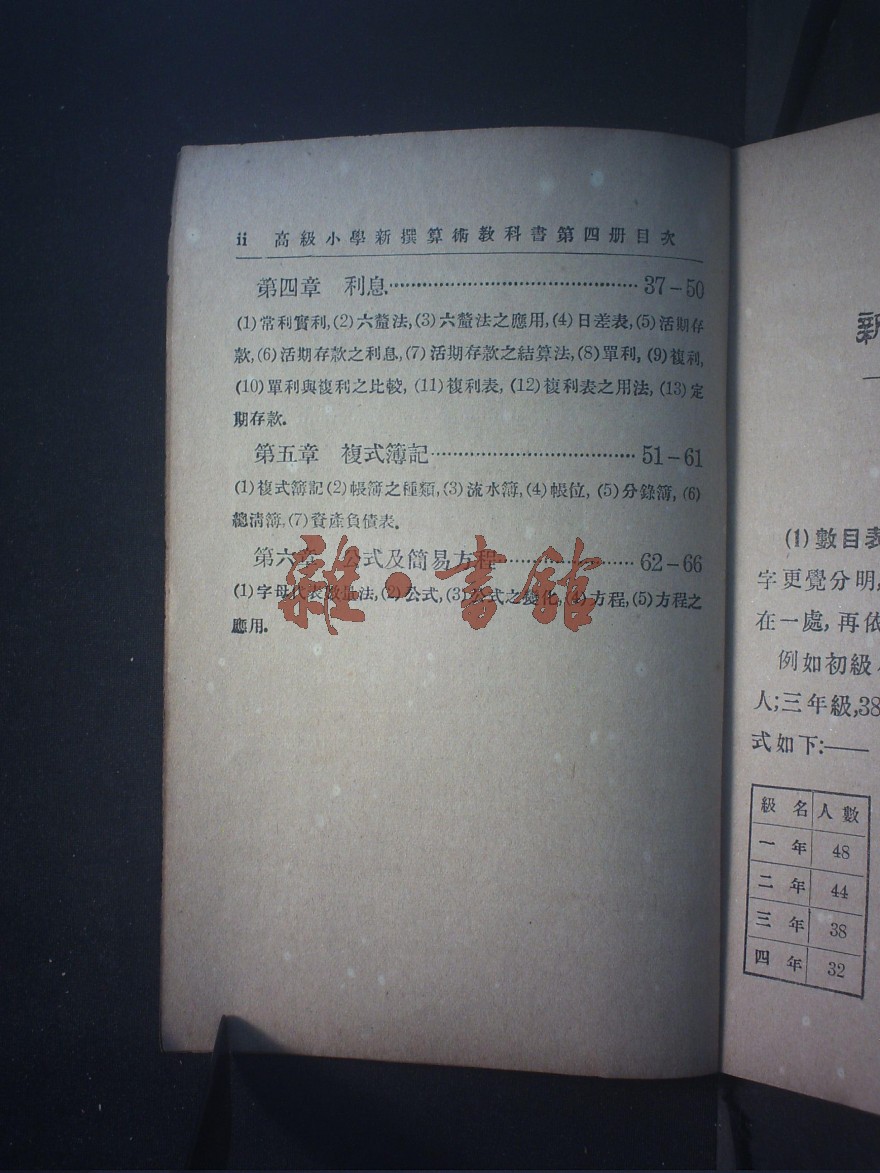 ii 高級小學新撰算術教科書第四册目次
第四章 利息········································ 37－50
(1)常利實利,(2)六釐法,(3)六釐法之應用,(4)日差表,(5)活期存
款,(6)活期存款之利息,(7)活期存款之結算法,(8)單利,(9)複利,
(10)單利與複利之比較,(11)複利表,(12)複利表之用法,(13)定
期存款.
第五章 複式簿記································· 51－61
(1)複式簿記(2)帳簿之種類,(3)流水簿,(4)帳位,(5)分錄簿,(6)
總清簿,(7)資產負債表.
第六章 公式及簡易方程······················ 62－66
(1)字母代表數量法,(2)公式,(3)公式之變化,(4)方程,(5)方程之
應用.
雜·書館
新
(1)數目表
字更覺分明,
在一處,再依
例如初級
人;三年級,38
式如下:——
級名 人數
一年 48
二年 44
三年 38
四年 32